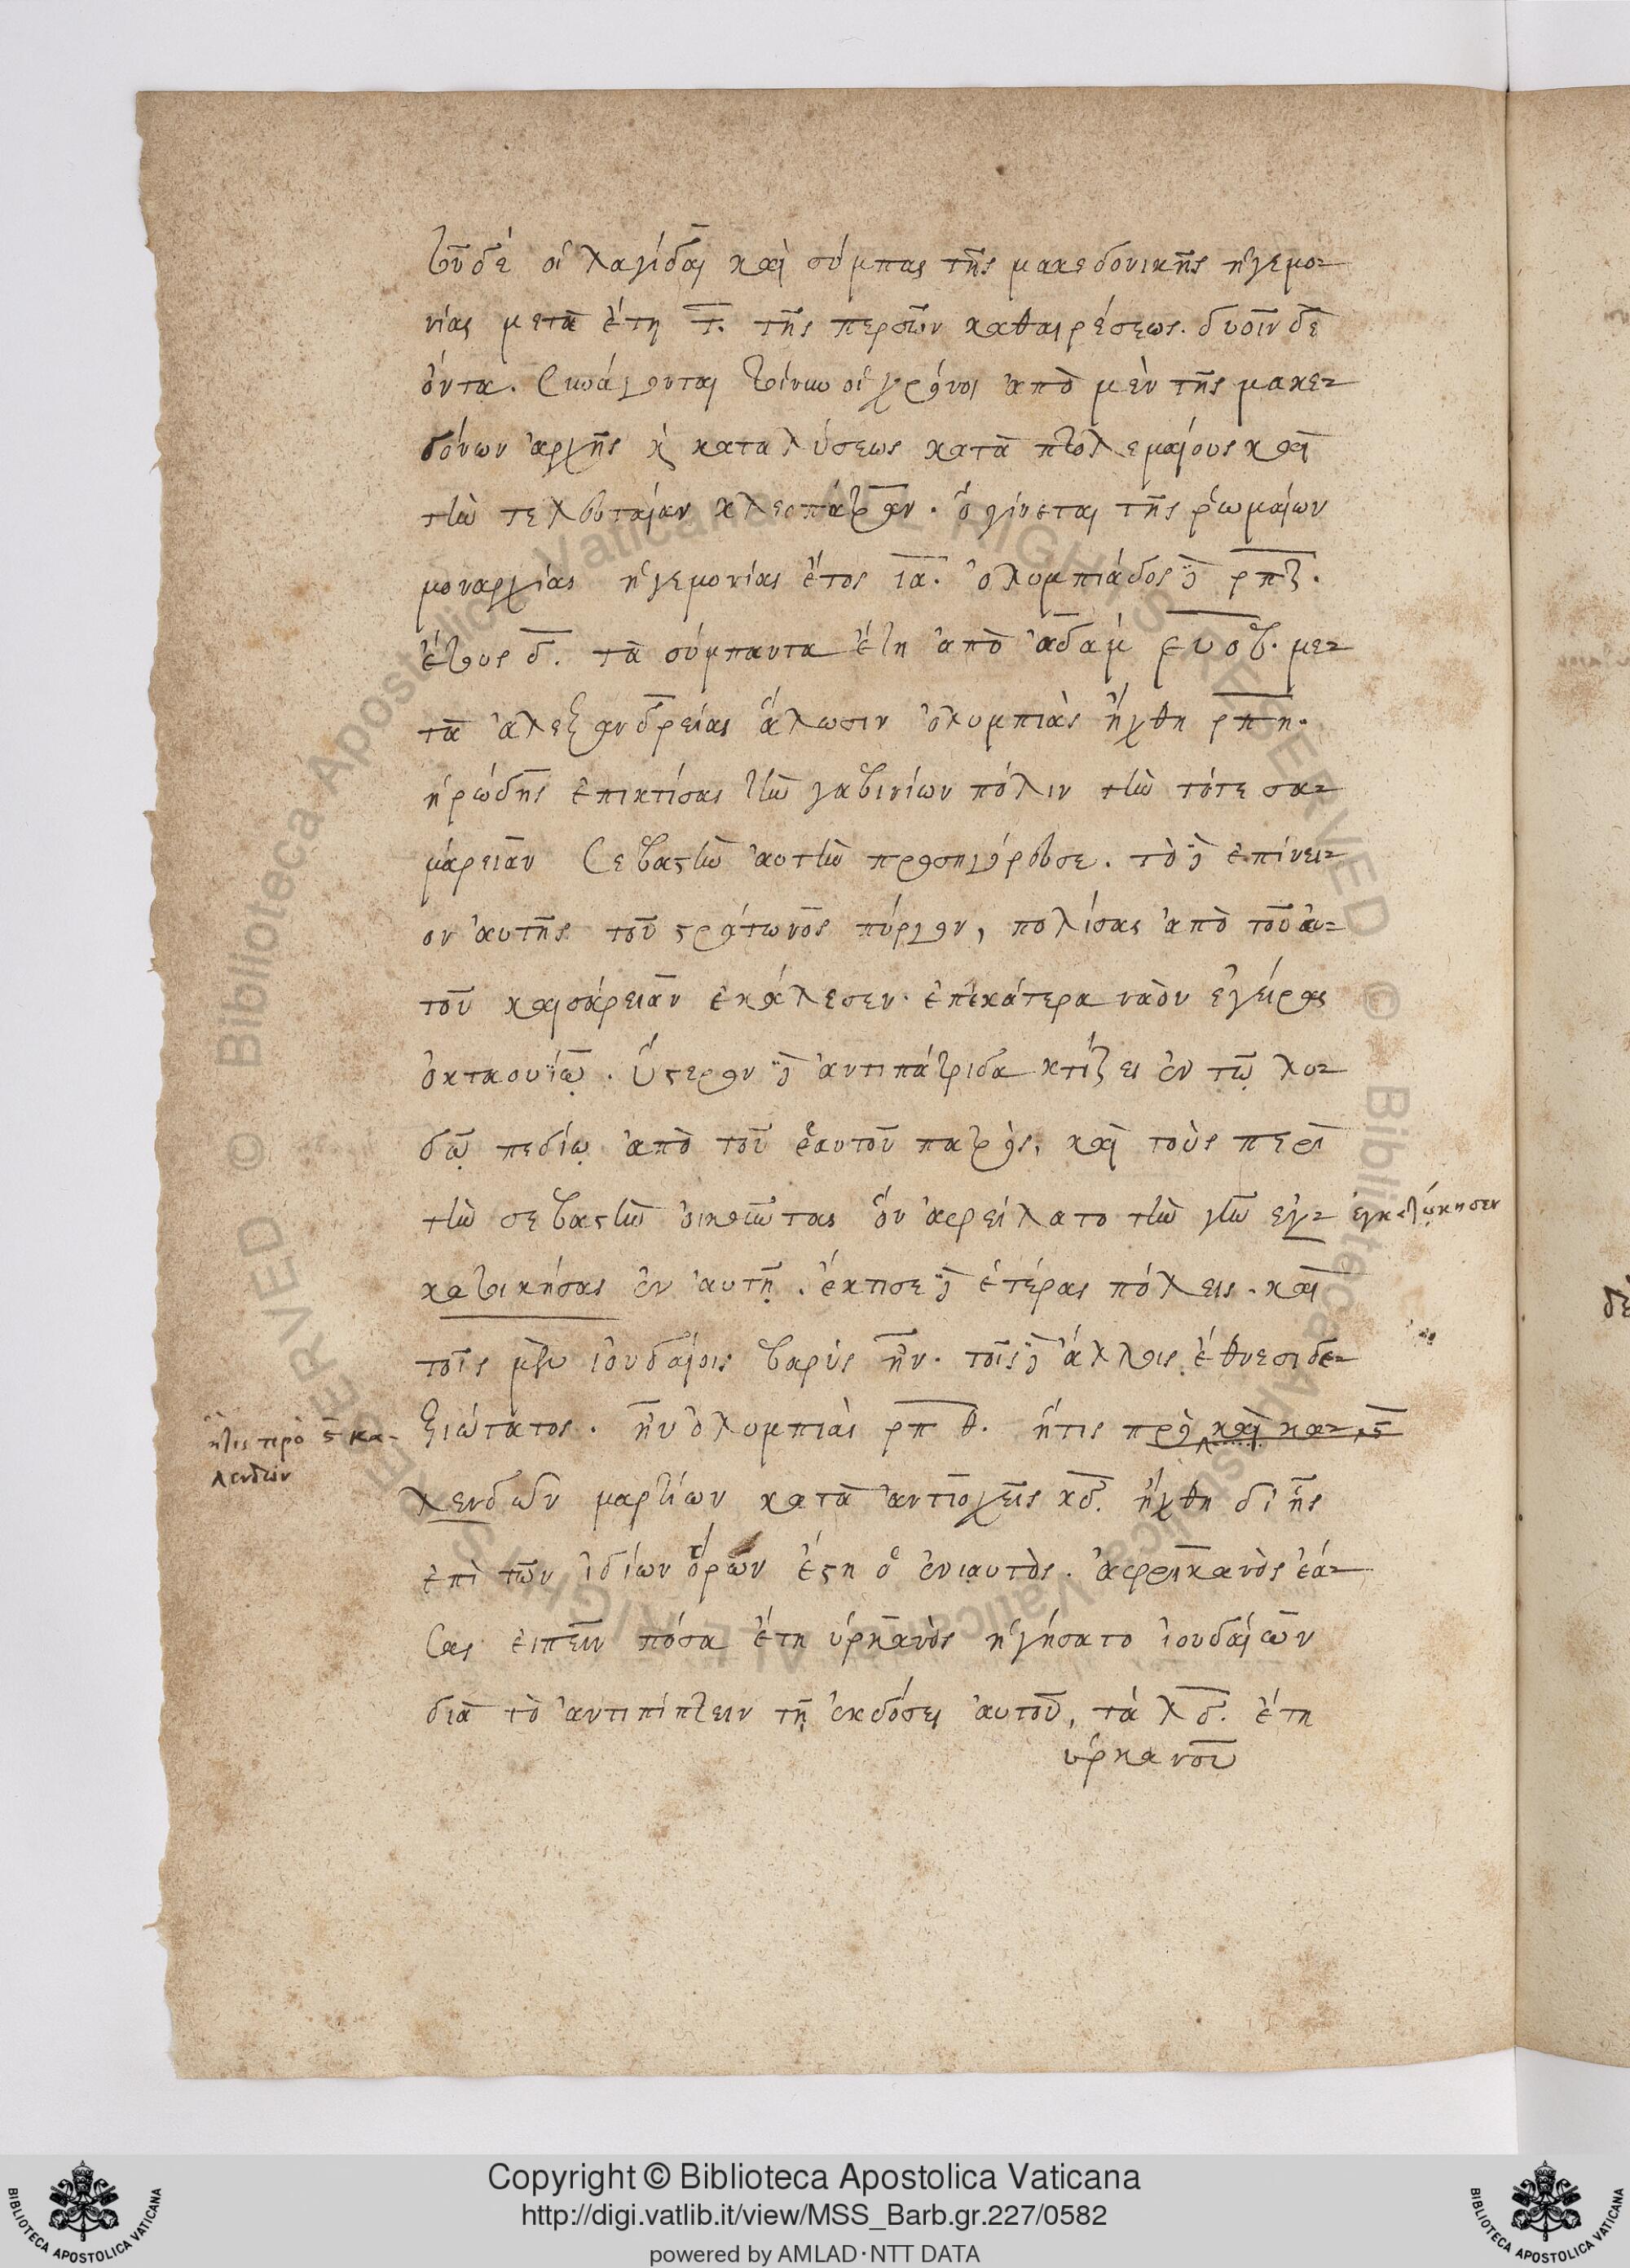 τοῦδε οἱ λαγίδαι καὶ σύμπας τῆς μακεδονικῆς ἡγεμο-
νίας μετὰ ἔτη τ. τῆς περσῶν καθαιρέσεως. δυοῖν δὲ
όντα. συνάγονται τοίνυν οἱ χρόνοι ἀπὸ μὲν τῆς μακε-
δόνων ἀρχῆς κ καταλύσεως κατὰ πτολεμαίους καὶ
τὴν τελευταίαν κλεοπάτραν. ὃ γίνεται τῆς ῥωμαίων
μοναρχίας ἡγεμονίας ἔτος ια. ὀλυμπιάδος δὲ ρπζ.
ἔτους δ. τὰ σύμπαντα ἔτη ἀπὸ ἀδὰμ ευοβ. με-
τὰ ἀλεξανδρείας ἅλωσιν ὀλυμπιὰς ἤχθη ρπη.
ἡρώδης ἐπικτίσας τὴν γαβινίων πόλιν τὴν τότε σα-
μάρειαν σεβαστὴν αὐτὴν προσηγόρευσε. τὸ δὲ ἐπίνει-
ον αὐτῆς τοῦ στράτωνος πύργον, πολίσας ἀπὸ τοῦ αὐ-
τοῦ καισάρειαν ἐκάλεσεν. ἐπ' ἑκάτερα ναὸν ἐγείρας
ὀκταουίῳ. ὕστερον δὲ ἀντιπάτριδα κτίζει ἐν τῷ λυ-
δῷ πεδίῳ ἀπὸ τοῦ ἑαυτοῦ πατρός, καὶ τοὺς περὶ
τὴν σεβαστὴν οἰκοῦντας ὃν ἀφείλατο τὴν γῆν εγ- ἐγκατῴκησεν
κατοικήσας ἐν αὐτῇ. ἔκτισε δὲ ἑτέρας πόλεις. καὶ
τοῖς μὲν ἰουδαίοις βαρὺς ἦν. τοῖς δὲ ἄλλοις ἔθνεσι δε-
ξιώτατος. ἦν ὀλυμπιὰς ρπθ. ἥτις πρὸ καὶ κα- ς
ἥτις πρὸ ς κα-
λενδῶν
λενδῶν μαρτίων κατὰ ἀντιοχεῖς κδ. ἤχθη δι' ἧς
ἐπὶ τῶν ἰδίων ὅρων ἔστη ὁ ἐνιαυτὸς. ἀφρικανὸς ἐά-
σας εἰπεῖν πόσα ἔτη ὑρκανὸς ἡγήσατο ἰουδαίων
διὰ τὸ ἀντιπίπτειν τῇ ἐκδόσει αὐτοῦ, τὰ λδ. ἔτη
ὑρκανοῦ
Copyright © Biblioteca Apostolica Vaticana
http://digi.vatlib.it/view/MSS_Barb.gr.227/0582
powered by AMLAD·NTT DATA